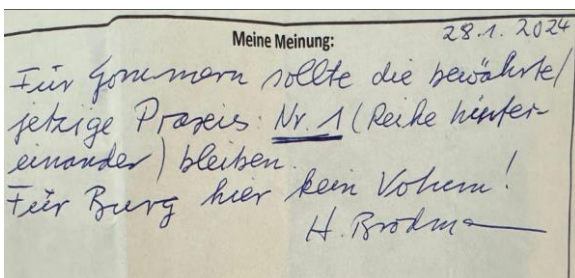 28.1.2024
Meine Meinung:
Für Gommern sollte die bewährte/
jetzige Praxis: Nr. 1 (Reihe hinter-
einander) bleiben.
Für Burg hier kein Votum!
H. Brodma